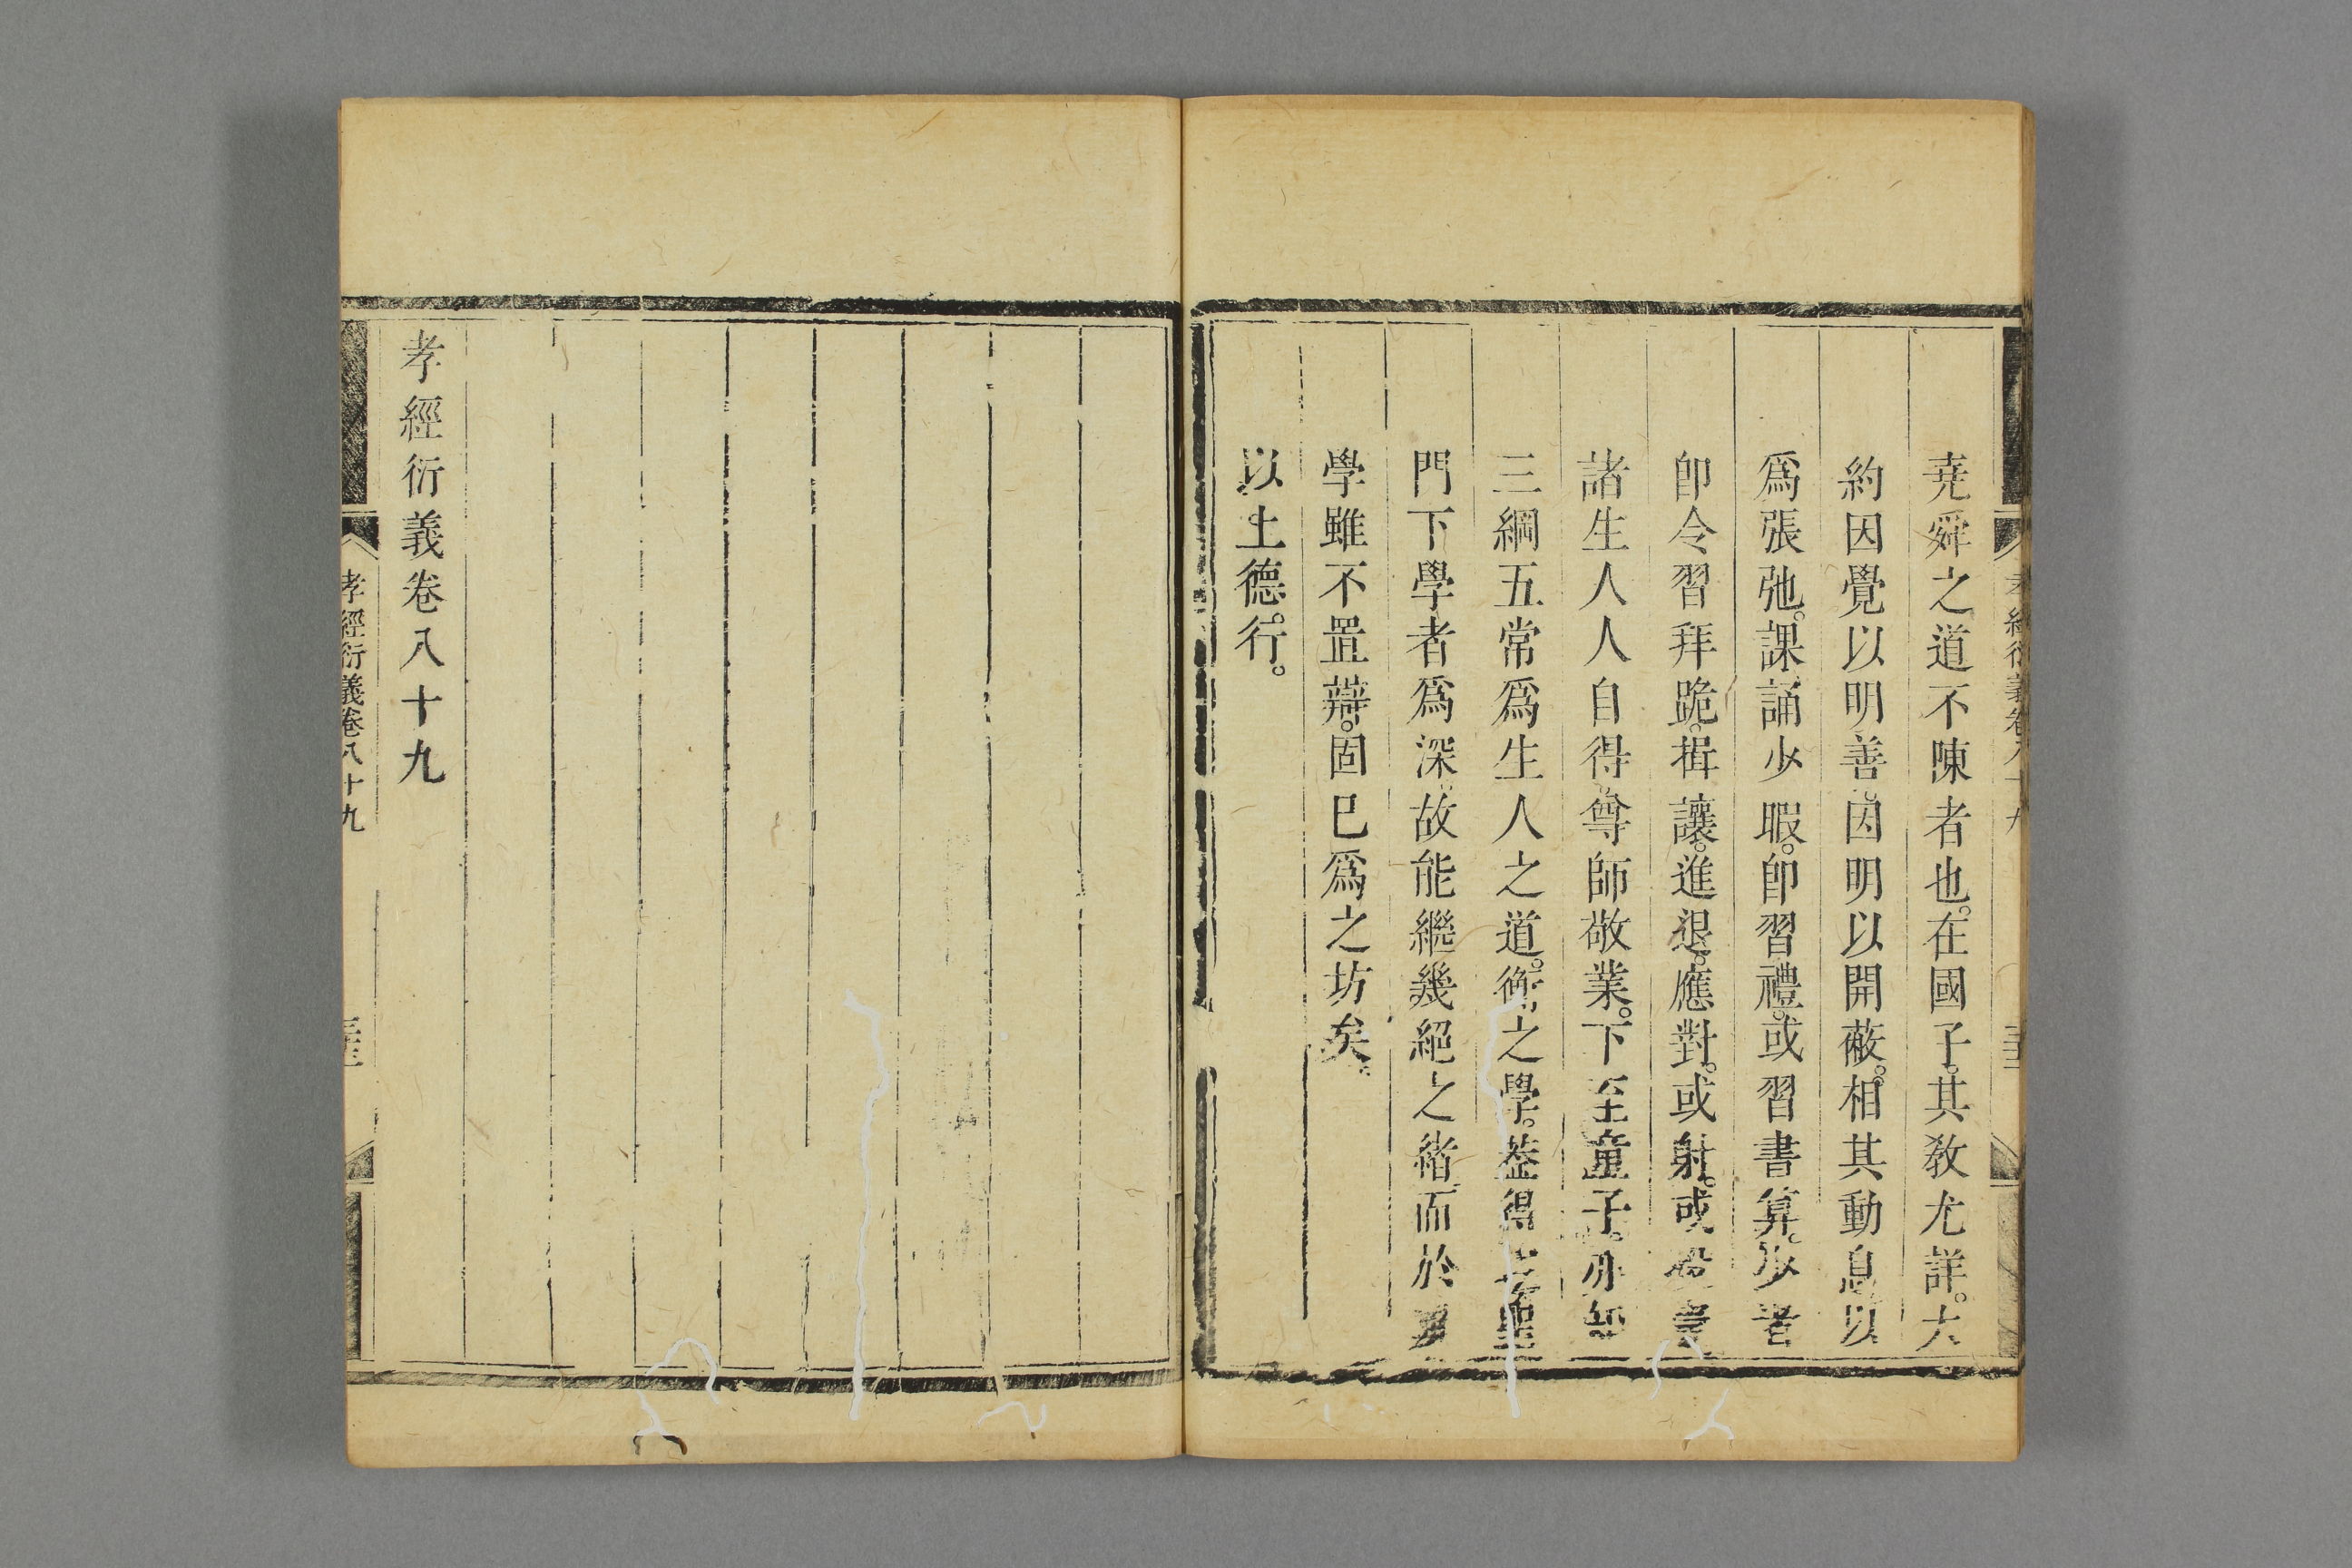 堯舜之道不陳者也。在國子。其教尤詳。大
約因覺以明善。因明以開蔽。相其動息以
爲張弛。課誦少暇。卽習禮。或習書算。少者
卽令習拜跪。揖讓。進退。應對。或射。或
諸生人人自得尊師敬業。下至童子。亦知
三綱五常爲生人之道。衡之學。蓋得之聖
門下學者爲深。故能繼幾絕之緒而於
學雖不置辯。固已爲之坊矣。
以上德行。
孝經衍義卷八十九
孝經衍義卷八十九
孝經衍義卷八十九